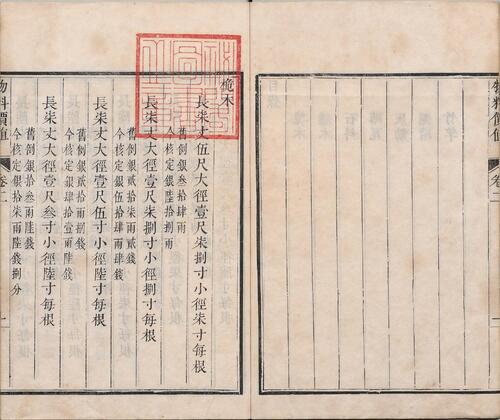 桅木
長柒丈伍尺大徑壹尺柒捌寸小徑柒寸每根
舊例銀叁拾肆兩
今核定銀陸拾捌兩
長柒丈大徑壹尺柒捌寸小徑捌寸每根
舊例銀貳拾柒兩貳錢
今核定銀伍拾肆兩肆錢
長柒丈大徑壹尺伍寸小徑陸寸每根
舊例銀貳拾兩捌錢
今核定銀肆拾壹兩陸錢
長柒丈大徑壹尺叁寸小徑陸寸每根
舊例銀拾叁兩陸錢
今核定銀拾柒兩陸錢捌分
物料價值
卷二
一